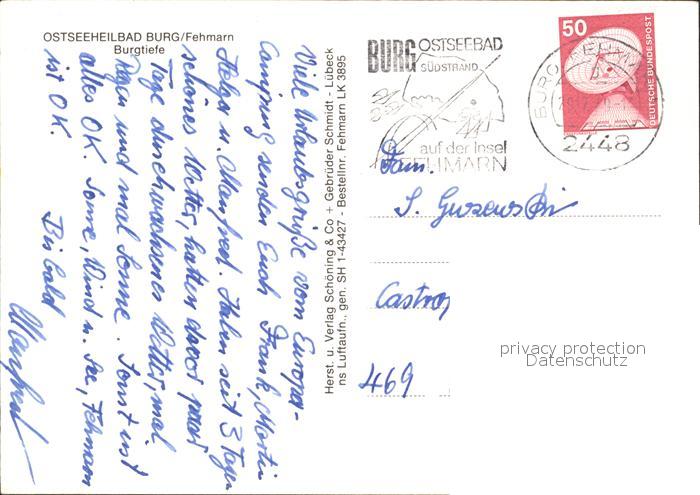 OSTSEEHEILBAD BURG/Fehmarn
Burgtiefe
Viele Urlaubsgrüße vom Europa-
Camping senden Euch Frank, Martin
Helga u. Manfred. Haben seit 3 Tagen
schönes Wetter, hatten davor paar
Tage durchwachsenes Wetter, mal
Regen und mal Sonne. Sonst ist
alles OK. Sonne, Wind u. See, Fehmarn
ist OK.
Bis bald
Manfred
Herst. u. Verlag Schöning & Co + Gebrüder Schmidt - Lübeck
ns Luftaufn., gen. SH 1-43427 - Bestellnr. Fehmarn LK 3895
BURG OSTSEEBAD
SÜDSTRAND
auf der Insel
FEHMARN
50
DEUTSCHE BUNDESPOST
BURG
2448
Fam.
Castrop
469
privacy protection
Datenschutz